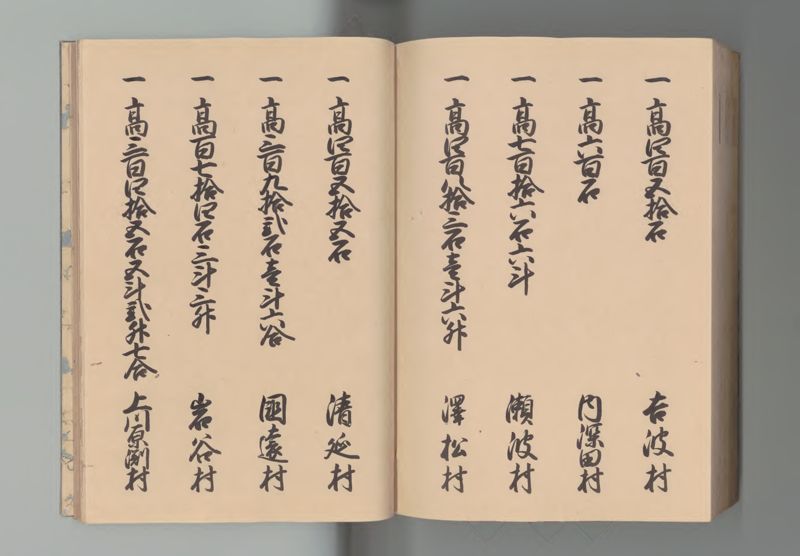 一 高四百五拾石 吉波村
一 高六百石 内深田村
一 高七百拾六石六斗 瀬波村
一 高四百八拾三石壹斗六升 澤松村
一 高四百五拾五石 清延村
一 高三百九拾貳石壹斗六合 國遠村
一 高百七拾四石三斗三升 岩谷村
一 高三百四拾五石五斗貳升七合 上川原渕村